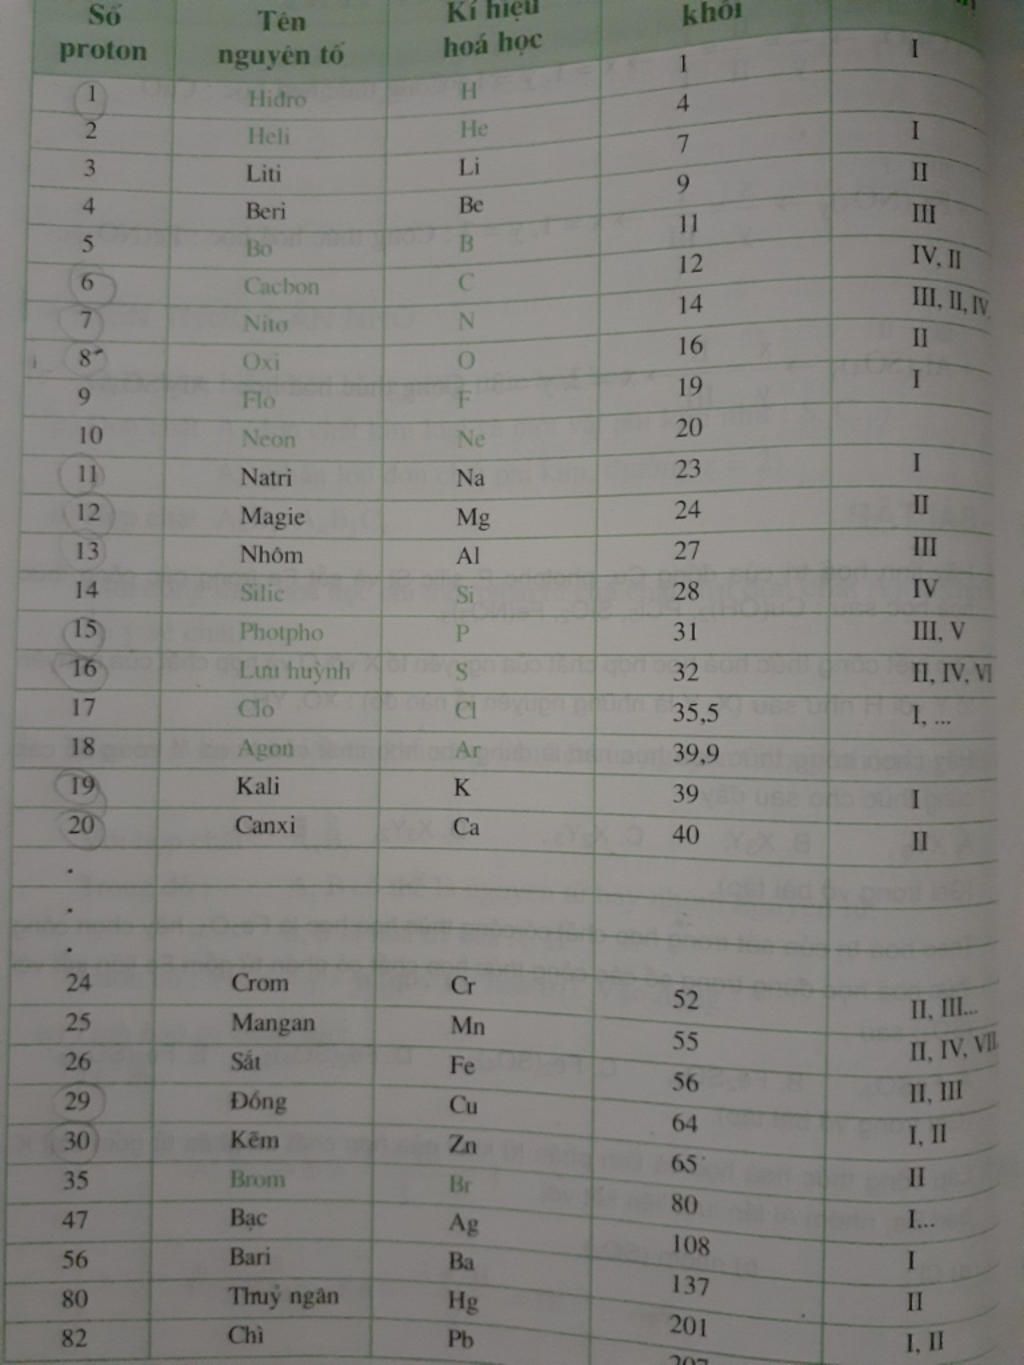 Số proton Tên nguyên tố Kí hiệu hoá học khối
1 Hiđro H 1 I
2 Heli He 4
3 Liti Li 7 I
4 Beri Be 9 II
5 Bo B 11 III
6 Cacbon C 12 IV, II
7 Nitơ N 14 III, II, IV
8 Oxi O 16 II
9 Flo F 19 I
10 Neon Ne 20
11 Natri Na 23 I
12 Magie Mg 24 II
13 Nhôm Al 27 III
14 Silic Si 28 IV
15 Photpho P 31 III, V
16 Lưu huỳnh S 32 II, IV, VI
17 Clo Cl 35,5 I, ...
18 Agon Ar 39,9
19 Kali K 39 I
20 Canxi Ca 40 II
.
.
.
24 Crom Cr 52 II, III...
25 Mangan Mn 55 II, IV, VII
26 Sắt Fe 56 II, III
29 Đồng Cu 64 I, II
30 Kẽm Zn 65 II
35 Brom Br 80 I...
47 Bạc Ag 108 I
56 Bari Ba 137 II
80 Thuỷ ngân Hg 201 I, II
82 Chì Pb 207